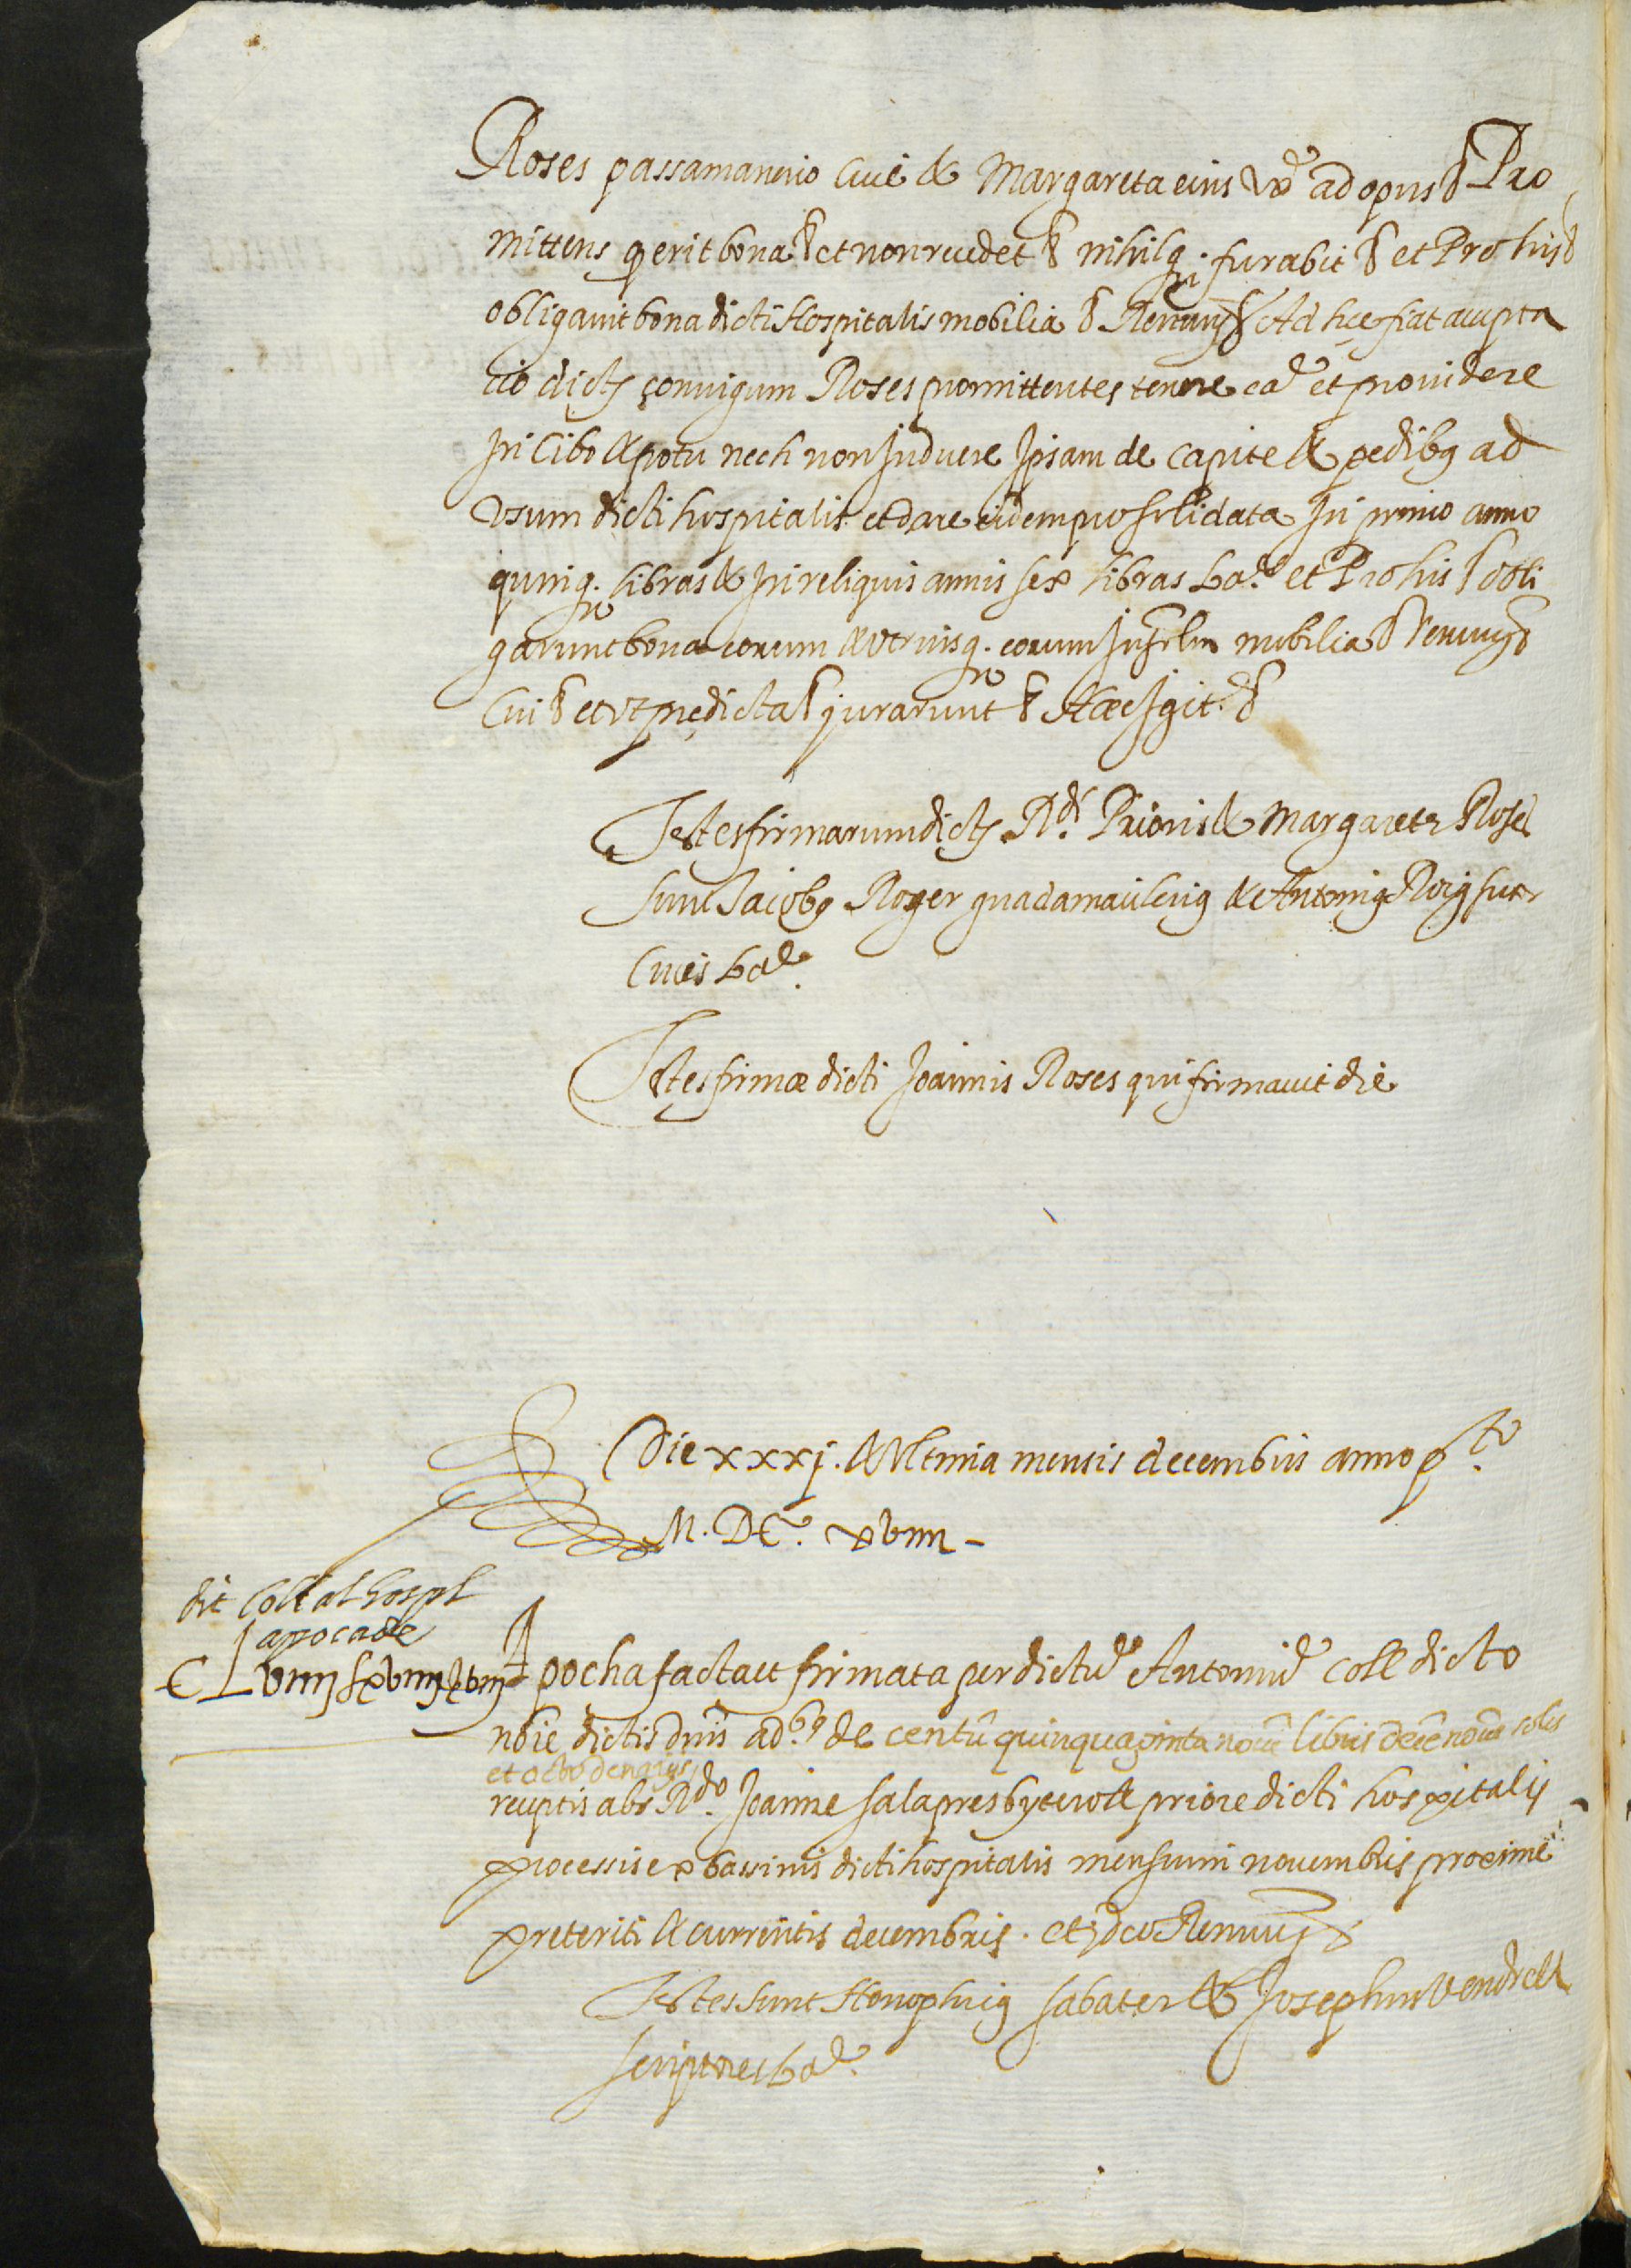 Roses passamanerio Cive & Margareta eius vx.e ad opus &. Pro
mittens q erit bona & et non recedet & nihilq. furabit & et Pro his &
obligavit bona dicti Hospitalis mobilia & Renun. & Ad hec fiat accepta
cio dict. conuigum Roses promittentes tenere ea et providere
In Cibo & potu nech non Induere Ipsam de capite & pedibq ad
Vsum dicti hospitalis et dare eidem pro solidata In primo anno
quinq. libras & In reliquis annis sex libras Ba.e et Pro his & obli
garunt bona eorum & vtriusq. eorum Insolm mobilia & Renun. &
Cui & et vt predicta & jurarunt & Hæc Igit. &
Testes firmarum dict. R.di Prioris & Margarete Roses
sunt Jacobq Roger guadamacilerig & Antonig Roig sutr
Cives Ba.e
Testes firmæ dicti Joannis Roses qui firmavit die
Die xxxj. & Vltima mensis decembris anno p.to
M. DC. xviiii -
dit Coll al hospl
apoca de
CLviiij ₤ xviiij s viij
Apocha facta et firmata per dictu Antoniu Coll dicto
noie dictis dnis ad.bq de centu quinquaginta nove libris dece nove solis
et octo denarijs
receptis abs R.do Joanne sala presbytero & priore dicti hospitalis
processis ex bassinis dicti hospitalis mensium novembris proxime
preteriti & currentis decembris. et ideo Renun. &
Testes sunt Honophrig sabater & Josephus Vendrell
scriptores Ba.e